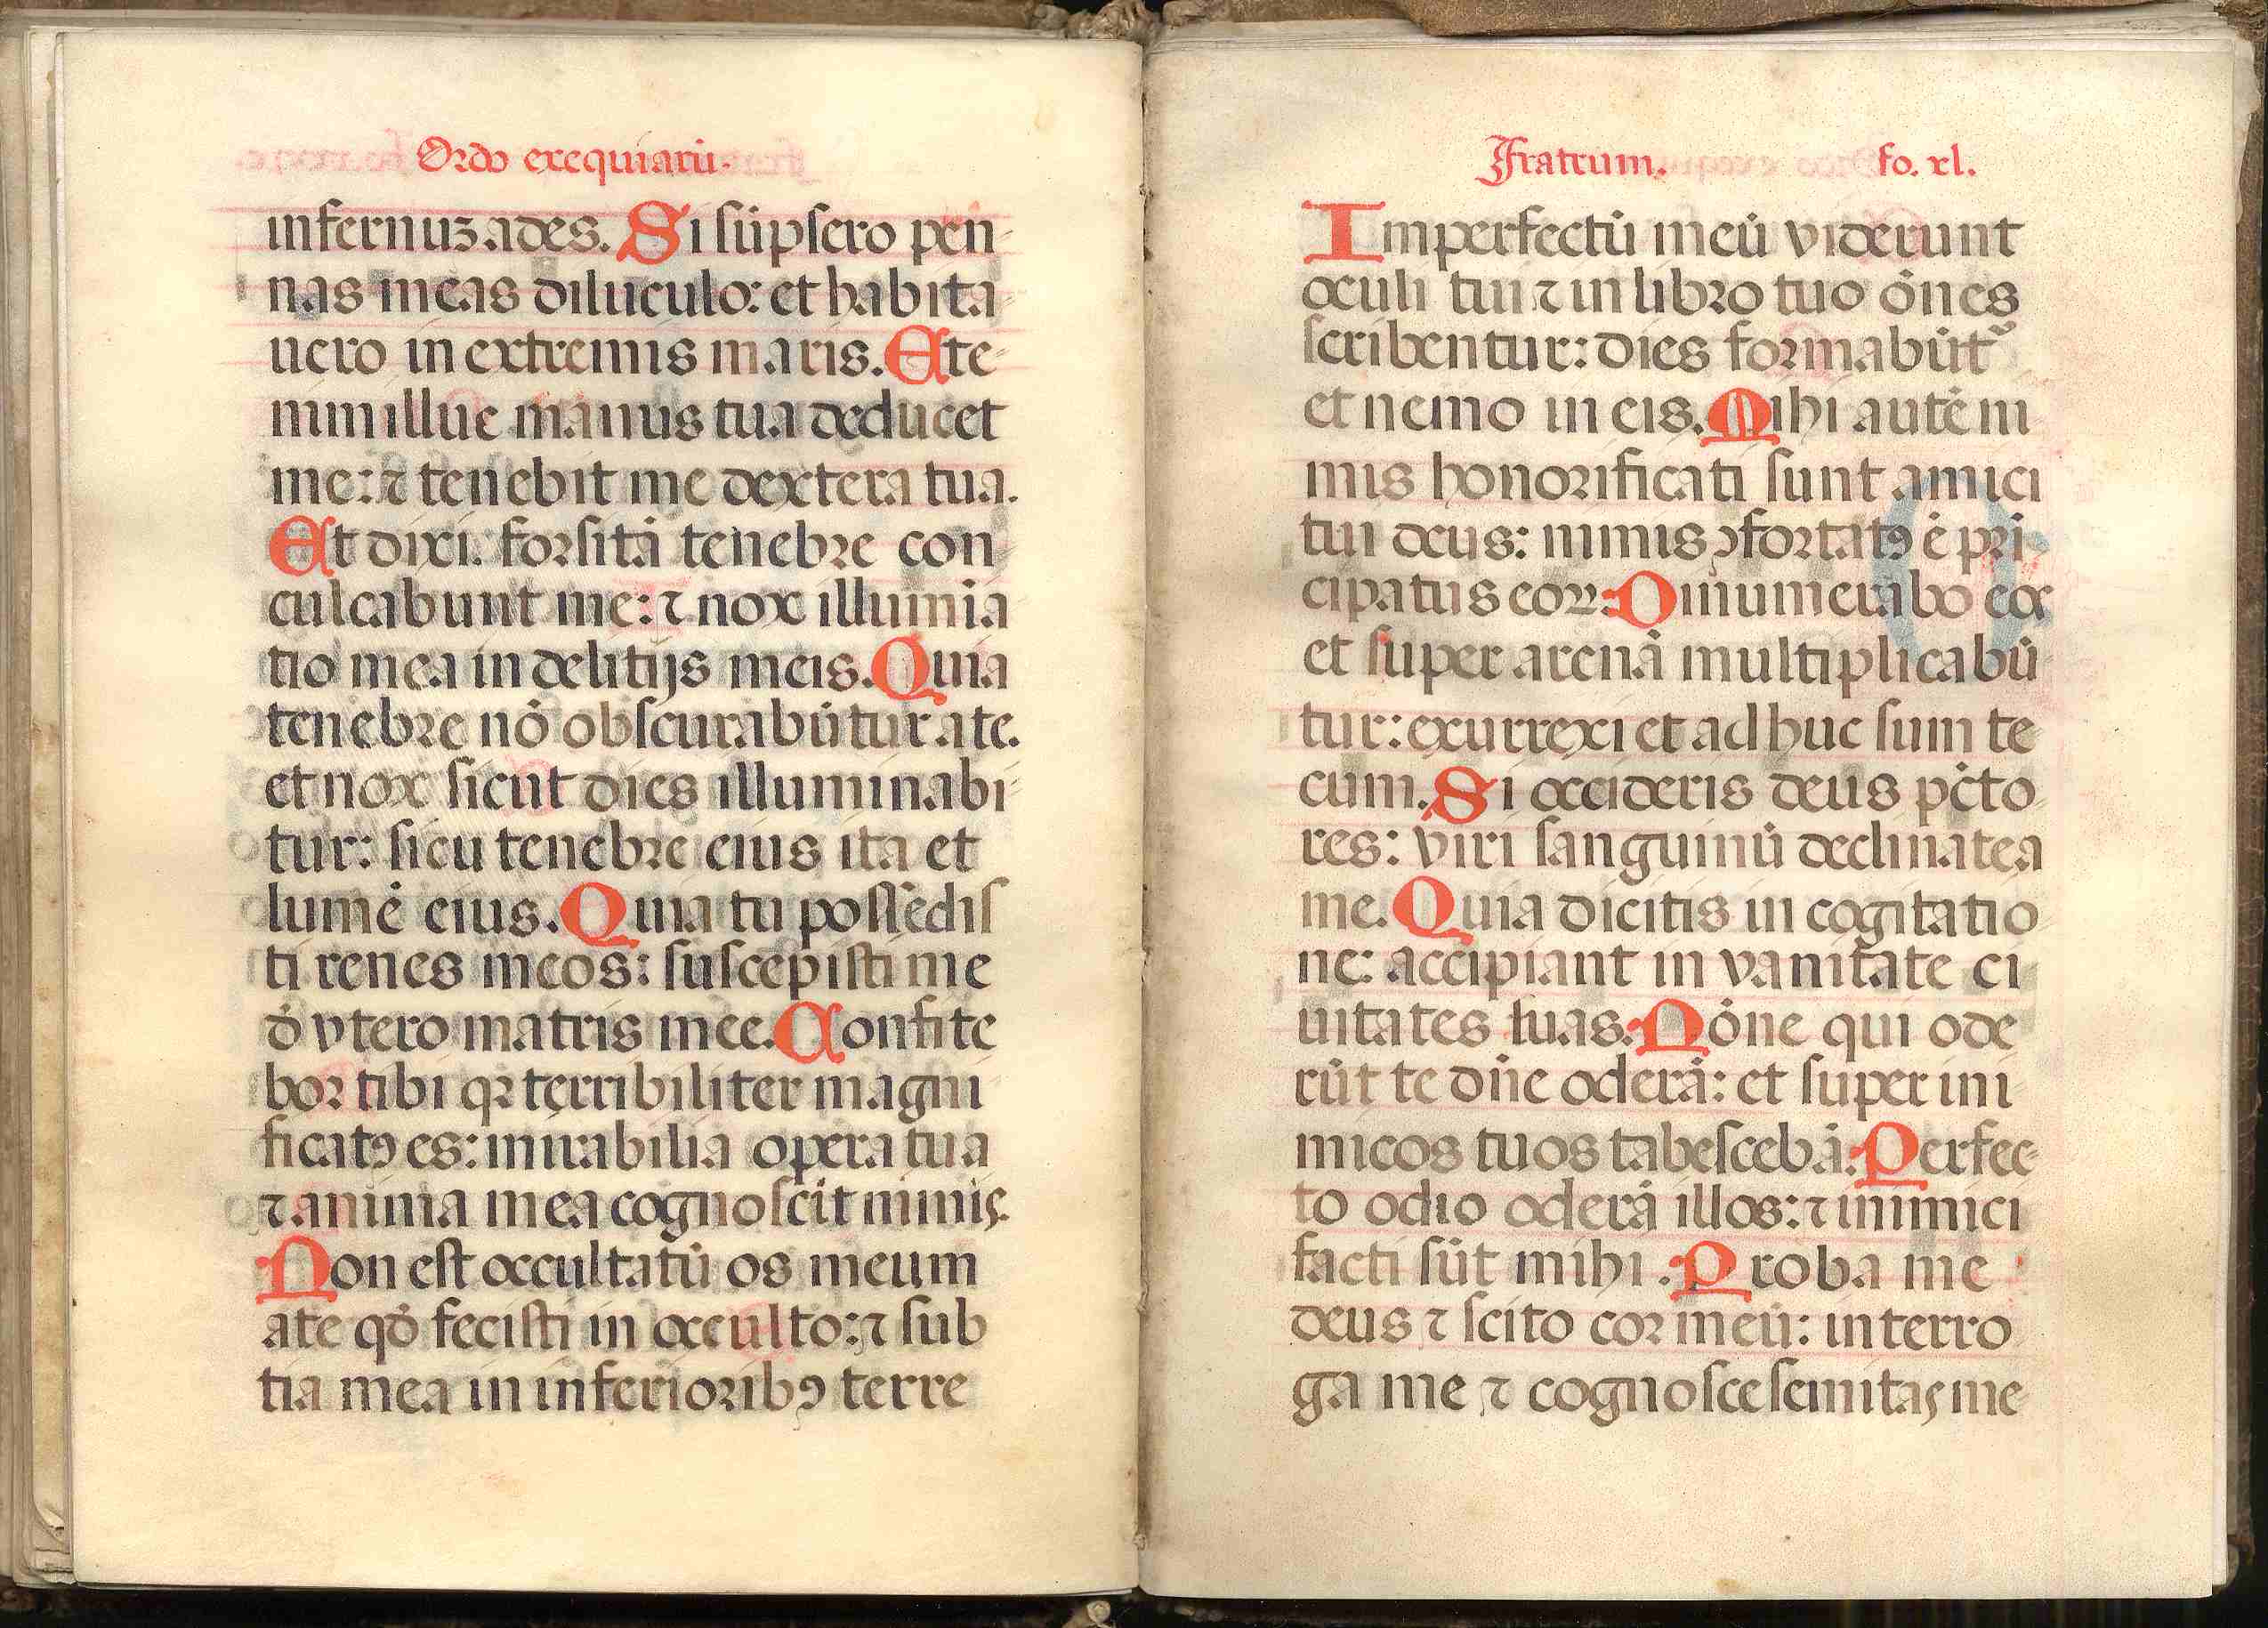 Ordo exequiarū.
infernuꝫ.ades. Si sūpsero pen-
nas meas diluculo: et habita-
uero in extremis maris. Ete-
nim illuc manus tua deducet
me: ⁊ tenebit me dextera tua.
Et dixi. forsitā tenebre con
culcabunt me: ⁊ nox illumia
tio mea in delitijs meis. Quia
tenebre nō obscurabūtur ate.
et nox sicut dies illuminabi-
tur: sicu tenebre eius ita et
lumē eius. Quia tu possedis
ti renes meos: suscepisti me
d̄ vtero matris mee. Confite
bor tibi qꝛ terribiliter magni
ficatꝯ es: mirabilia opera tua
⁊ anima mea cognoscit nimis.
Non est occultatū os meum
ate qd̄ fecisti in occulto: ⁊ sub
tia mea in inferioribꝯ terre
Fratrum. fo. xl.
Imperfectū meū viderunt
oculi tui ⁊ in libro tuo ōnes
scribentur: dies formabūt᷑
et nemo in eis. Mihi autē ni
mis honorificati sunt amici
tui deus: nimis ꝯfortatꝯ ē pri-
cipatus eoꝝ: Dinumerabo eos
et super arenā multiplicabū
tur: exurrexi et ad huc sum te
cum. Si occideris deus pc̄to
res: viri sanguinū declinate a
me. Quia dicitis in cogitatio
ne: accipiant in vanitate ci
uitates suas. Nōne qui ode
rūt te dn̄e oderā: et super ini
micos tuos tabescebā: Perfec-
to odio oderā illos: ⁊ inimici
facti sūt mihi. Proba me
deus ⁊ scito cor meū: interro
ga me ⁊ cognosce semitas me